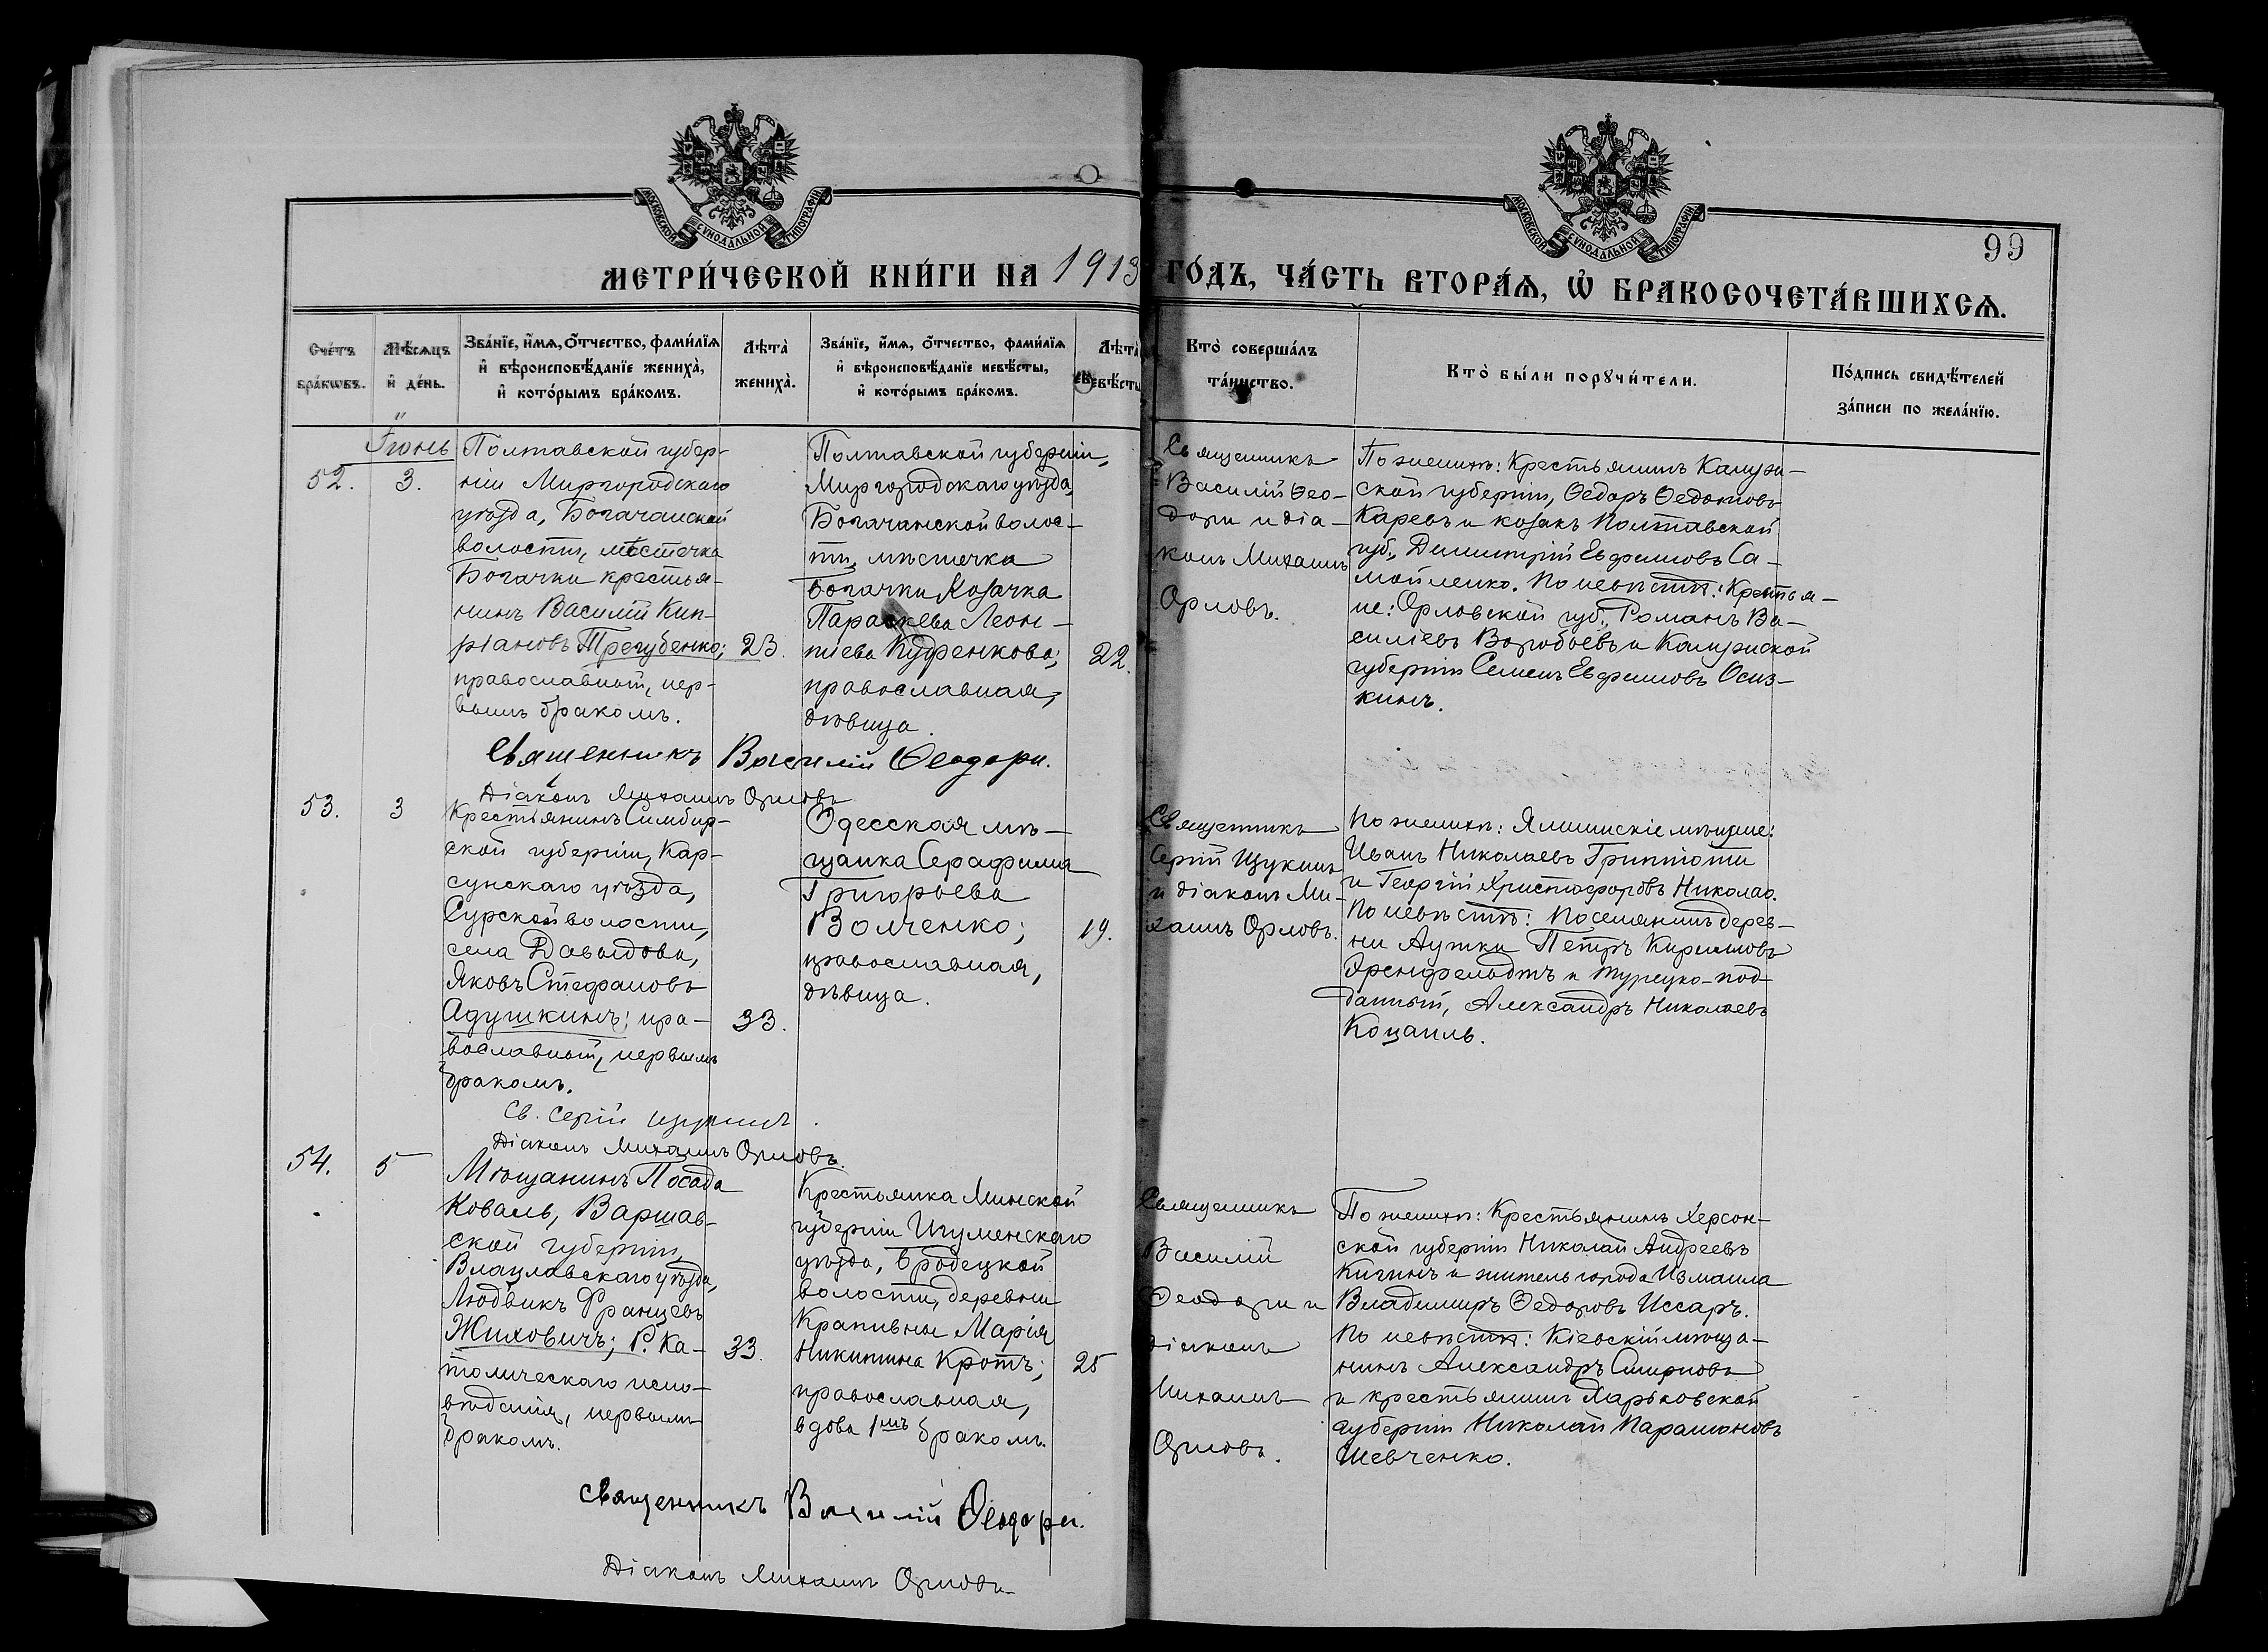 МОСКОВСКОЙ СѴНОДАЛЬНОЙ ТИПОГРАФІИ
МОСКОВСКОЙ СѴНОДАЛЬНОЙ ТИПОГРАФІИ
99
МЕТРИ́ЧЕСКОЙ КНИ́ГИ НА 1913 ГО́ДЪ, ЧА́СТЬ ВТОРА́Ѧ, Ѡ҆ БРАКОСОЧЕТА́ВШИХСѦ.
Сче́тъ бра́кѡвъ.
Мѣ́сѧцъ и҆ де́нь.
Зва́нїе, и҆́мѧ, ѻ҆́тчество, фами́лїѧ и҆ вѣроисповѣ́данїе жениха̀, и҆ кото́рымъ бра́комъ.
Лѣта̀ жениха̀.
Зва́нїе, и҆́мѧ, ѻ҆́тчество, фами́лїѧ и҆ вѣроисповѣ́данїе невѣ́сты, и҆ кото́рымъ бра́комъ.
Лѣта̀ невѣ́сты
Кто̀ соверша́лъ та́инство.
Кто̀ бы́ли порꙋчи́тели.
По́дпись свидѣ́телей за́писи по жела́нїю.
Іюнь
52.
3.
Полтавской губер-
ніи Миргородскаго
уѣзда, Богачанской
волости, мѣстечка
Богачки крестья-
нинъ Василій Кип-
ріановъ Трегубенко;
православный, пер-
вымъ бракомъ.
23.
Полтавской губерніи,
Миргородскаго уѣзда,
Богачанской волос-
ти, мѣстечка
Богачки Козачка
Параскева Леон-
тіева Куфенкова;
православная,
дѣвица.
22.
Священникъ
Василій Ѳео-
дори и діа-
конъ Михаилъ
Орловъ.
По женихѣ: Крестьянинъ Калуж-
ской губерніи, Ѳедоръ Ѳедотовъ
Каревъ и козакъ Полтавской
губ., Димитрій Ефимовъ Са-
мойленко. По невѣстѣ: Крестья-
не: Орловской губ., Романъ Ва-
силіевъ Воробьевъ и Калужской
губерніи Семенъ Ефимовъ Осиз-
кинъ.
Священникъ Василій Ѳеодори.
Діаконъ Михаилъ Орловъ
53.
3
Крестьянинъ Симбир-
ской губерніи, Кар-
сунскаго уѣзда,
Сурской волости,
села Давыдова,
Яковъ Стефановъ
Адушкинъ; пра-
вославный, первымъ
бракомъ.
33.
Одесская мѣ-
щанка Серафима
Григорьева
Волченко;
православная,
дѣвица.
19.
Священникъ
Сергій Щукинъ
и діаконъ Ми-
хаилъ Орловъ.
По женихѣ: Ялтинскіе мѣщане:
Иванъ Николаевъ
и Георгій Христофоровъ Николао.
По невѣстѣ: Поселянинъ дерев-
ни Аутки Петръ Кирилловъ
Эренфельдтъ и турецко-под-
данный, Александръ Николаевъ
Св. Сергій Щукинъ.
Діаконъ Михаилъ Орловъ.
54.
5
Мѣщанинъ Посада
Коваль, Варшав-
ской губерніи,
Влацлавскаго уѣзда,
Людвикъ Францевъ
Жиховичъ; Р. Ка-
толическаго испо-
вѣданія, первымъ
бракомъ.
33.
Крестьянка Минской
губерніи Игуменскаго
уѣзда, Бродецкой
волости, деревни
Крапивны Марія
Никитина Кротъ;
православная,
вдова 1мъ бракомъ.
25
Священникъ
Василій
Ѳеодори и
діаконъ
Михаилъ
Орловъ.
По женихѣ: Крестьянинъ Херсон-
ской губерніи Николай Андреевъ
Кигинъ и житель города Измаила
Владимиръ Ѳедоровъ Иссаръ.
По невѣстѣ: Кіевскій мѣща-
нинъ Александръ Смирновъ
и крестьянинъ Харьковской
губерніи Николай Парамоновъ
Шевченко.
Священникъ Василій Ѳеодори.
Діаконъ Михаилъ Орловъ